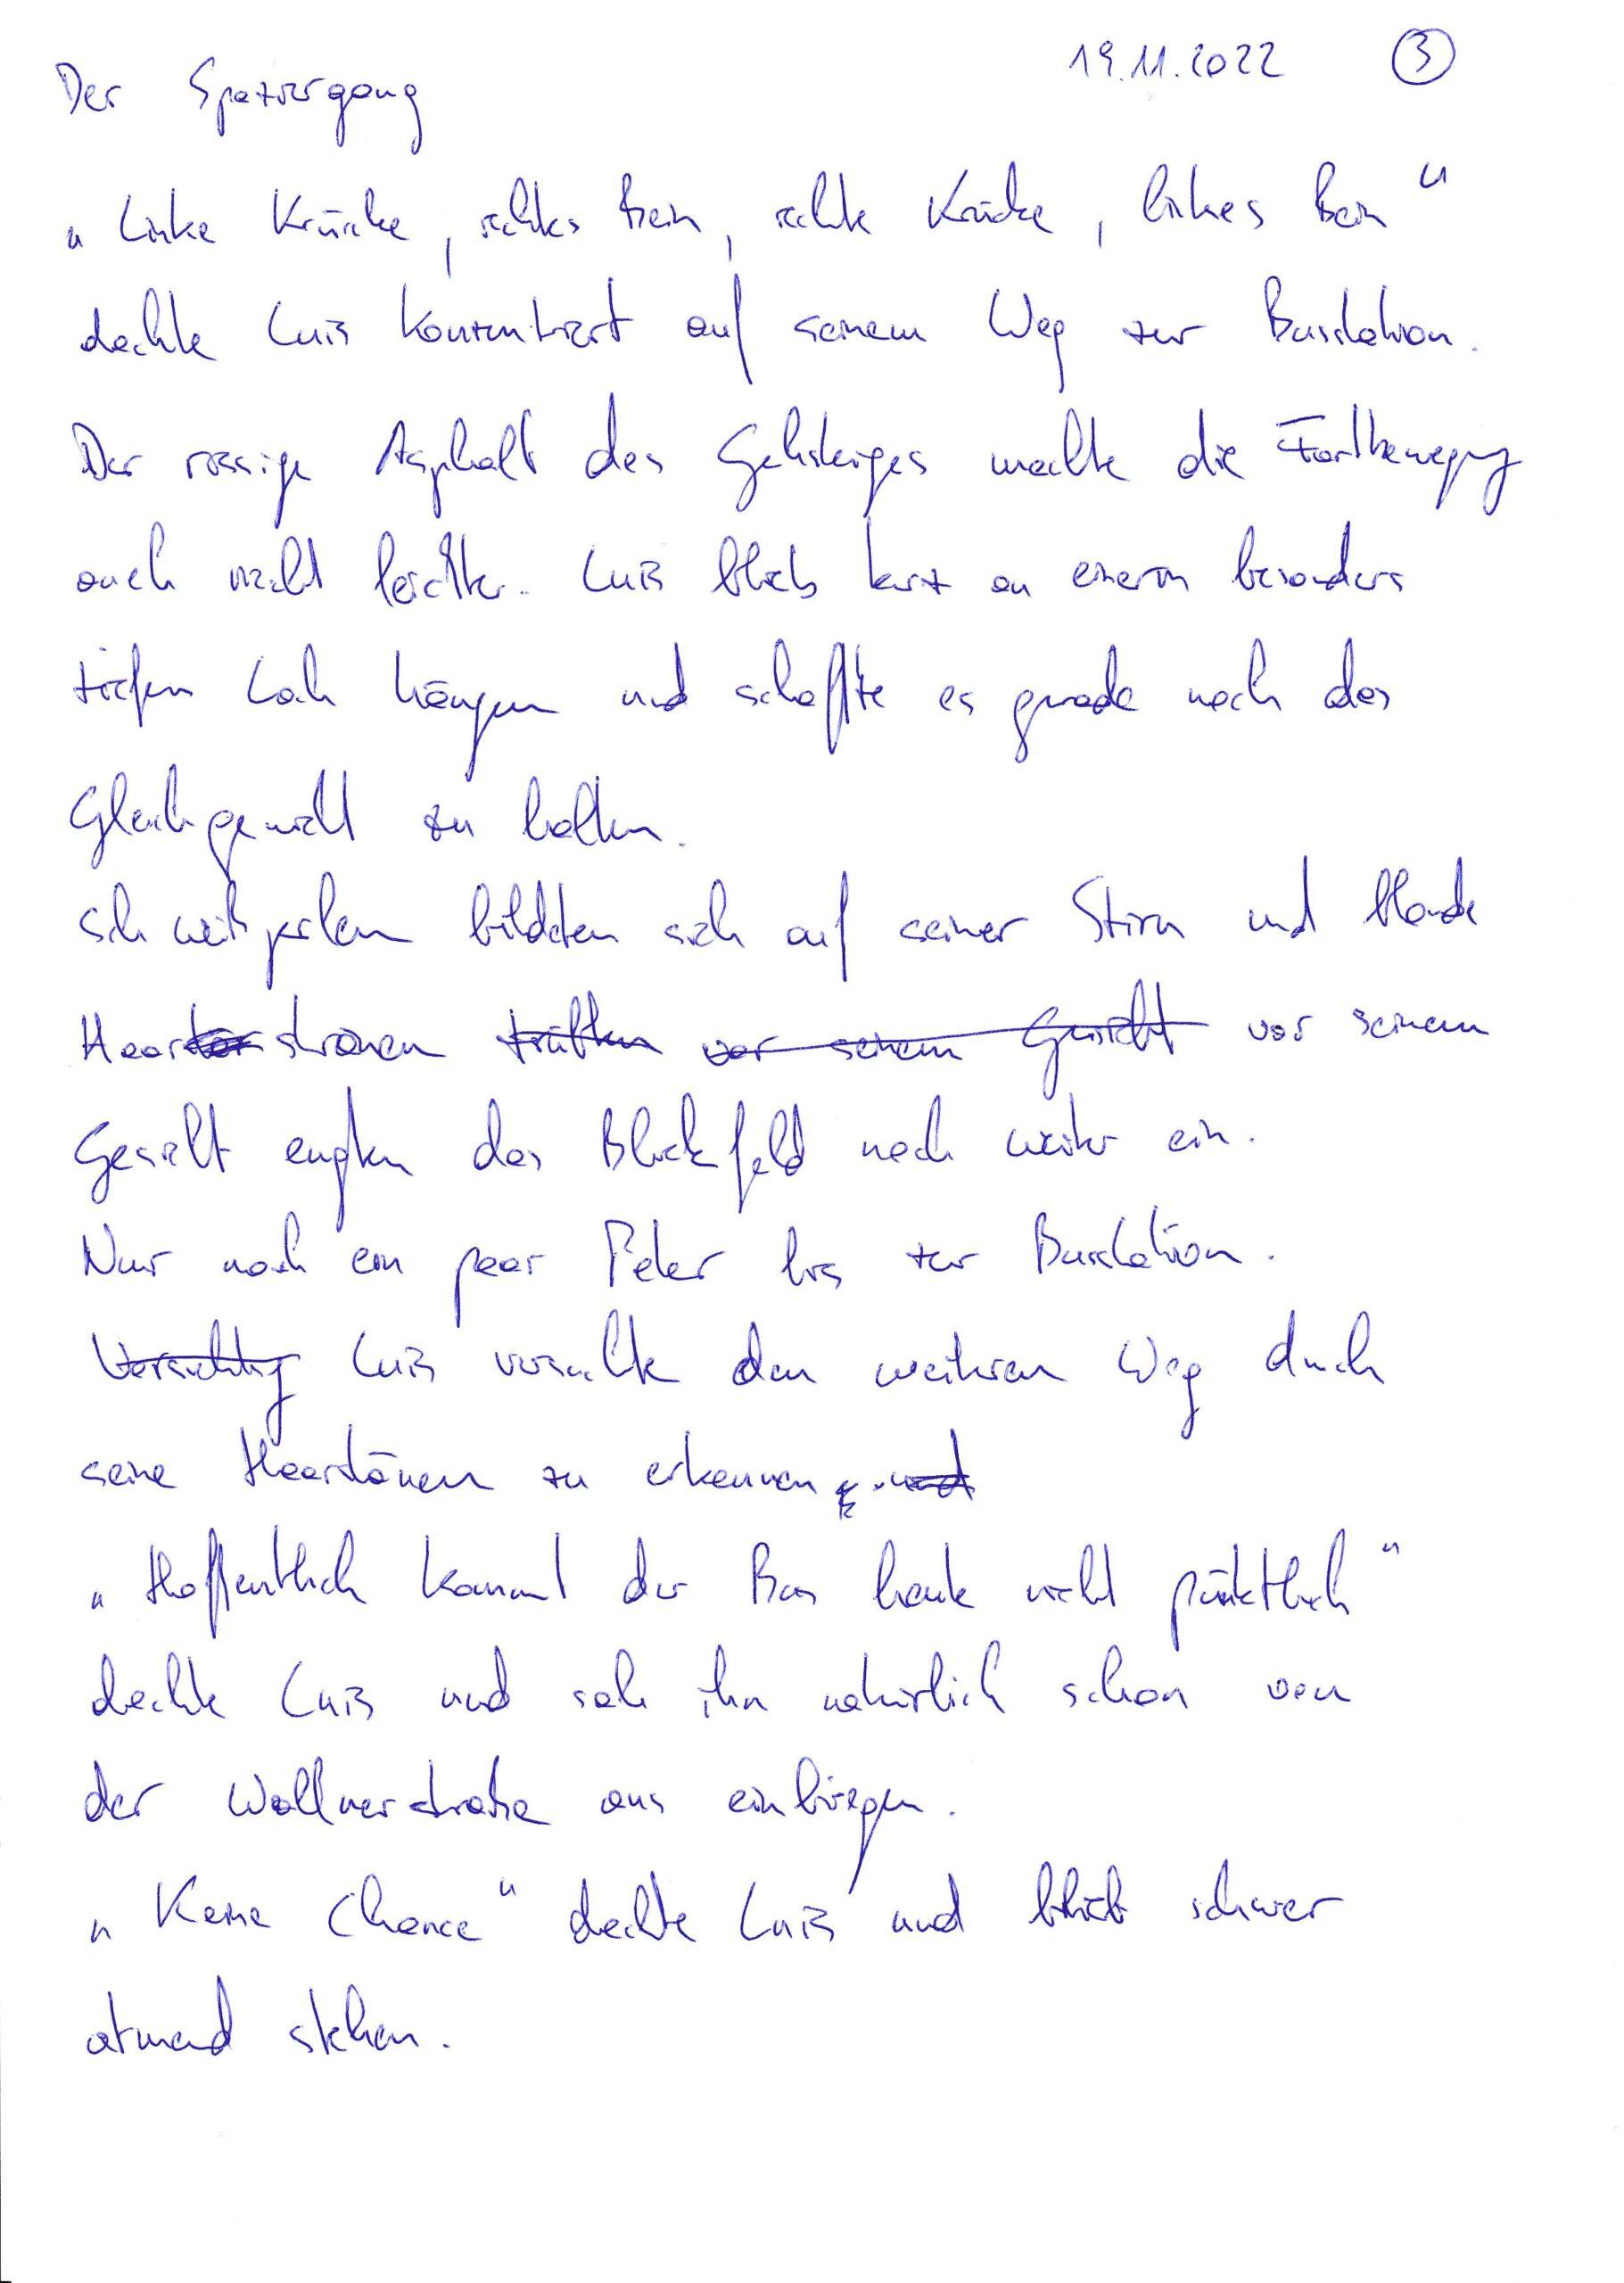 19.11.2022 ③
Der Spaziergang
„Linke Krücke, rechtes Bein, rechte Krücke, linkes Bein“
dachte Luis konzentriert auf seinem Weg zur Busstation.
Der rissige Asphalt des Gehsteiges machte die Fortbewegung
auch nicht leichter. Luis blieb kurz an einem besonders
tiefen Loch hängen und schaffte es gerade noch das
Gleichgewicht zu halten.
Schweißperlen bildeten sich auf seiner Stirn und blonde
Haarsträhnen vor seinem Gesicht vor seinem
Gesicht engten das Blickfeld noch weiter ein.
Nur noch ein paar Meter bis zur Busstation.
Vorsichtig Luis versuchte den weiteren Weg durch
seine Haarsträhnen zu erkennen. und
„Hoffentlich kommt der Bus heute nicht pünktlich“
dachte Luis und sah ihn natürlich schon von
der straße aus einbiegen.
„Keine Chance“ dachte Luis und blieb schwer
atmend stehen.